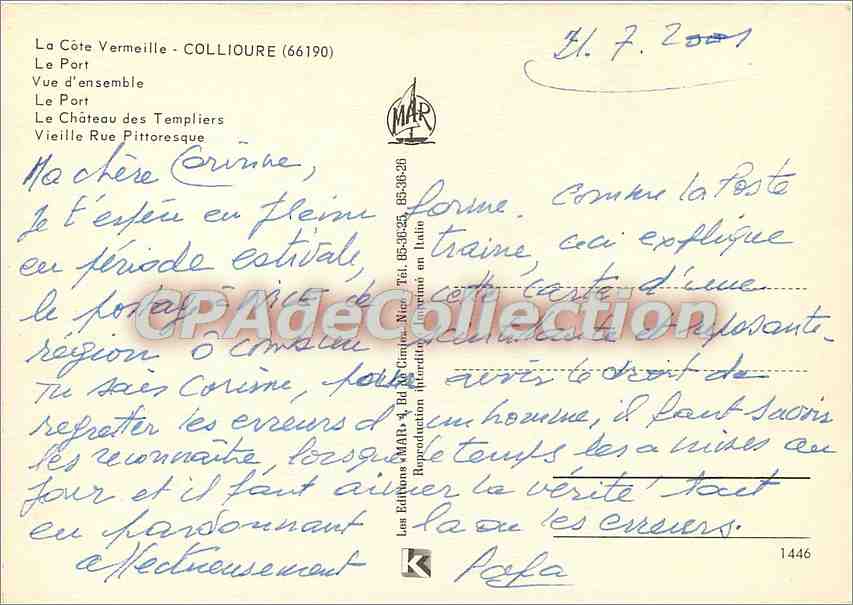 La Côte Vermeille - COLLIOURE (66190)
Le Port
Vue d'ensemble
Le Port
Le Château des Templiers
Vieille Rue Pittoresque
21. 7. 2001
MAR
Ma chère Corinne,
Je t'espère en pleine forme. Comme la Poste
en période estivale, traine, ceci explique
le postage à NICE de cette carte d'une
région ô combien scintillante et reposante.
Tu sais Corinne, pour avoir le droit de
regretter les erreurs d'un homme, il faut savoir
les reconnaître lorsque le temps les a mises au
jour et il faut aimer la vérité tout
en pardonnant la ou les erreurs.
affectueusement Papa
Les Editions «MAR» 4, Bd de Cimiez, Nice - Tél. 85-36-25, 85-36-26
Reproduction interdite - Imprimé en Italie
K
1446
CPAdeCollection